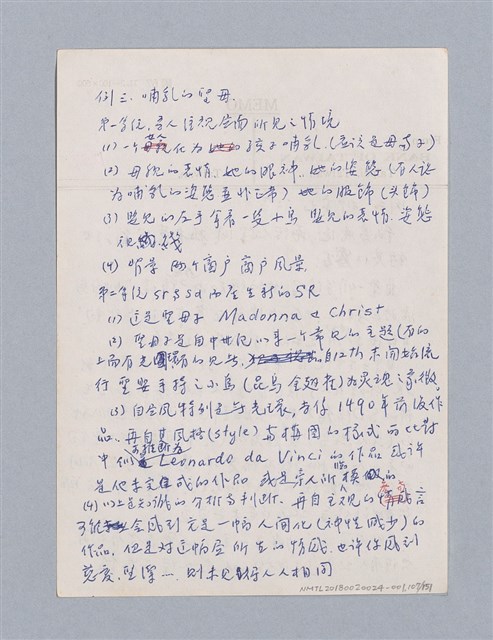 例三、哺乳的聖母.
第一層位,吾人注視畫面所見之情境
(1) 一个女人在為她的孩子哺乳.(應該是母與子)
(2) 母親的表情,她的眼神.她的姿態(有人認
為哺乳的姿態並非正常)她的服飾(头飾)
(3) 嬰兒的左手拿着一隻小鳥 嬰兒的表情.姿態
視綫
(4) 背景 兩个窗户窗户風景,
第二層位 srssa 而產生新的SR
(1) 這是聖母子 Madonna & Christ
(2) 聖母子是自中世紀以來一个常見的主題(有的
上面有光圈有的免去. 自12h末開始流
行 聖嬰手持之小鳥(品為金翅雀)為灵魂之象徵
(3) 自畫風特別是 光之表,當係1490年前後作
品.再自其風格(style)與構圖的樣式而比對
中 可推断為 Leonardo da Vinci的作品或許
是他未完成的作品 或是旁人所臨模的
(4) 以上是知識的分析与判断.再自主观的情感言
可能會感到它是一幅人间化(神性减少)的
作品,但是对這幅画所生的情感.也許你感到
慈愛.聖潔… 則未見得人人相同
NMTL20180020024-001